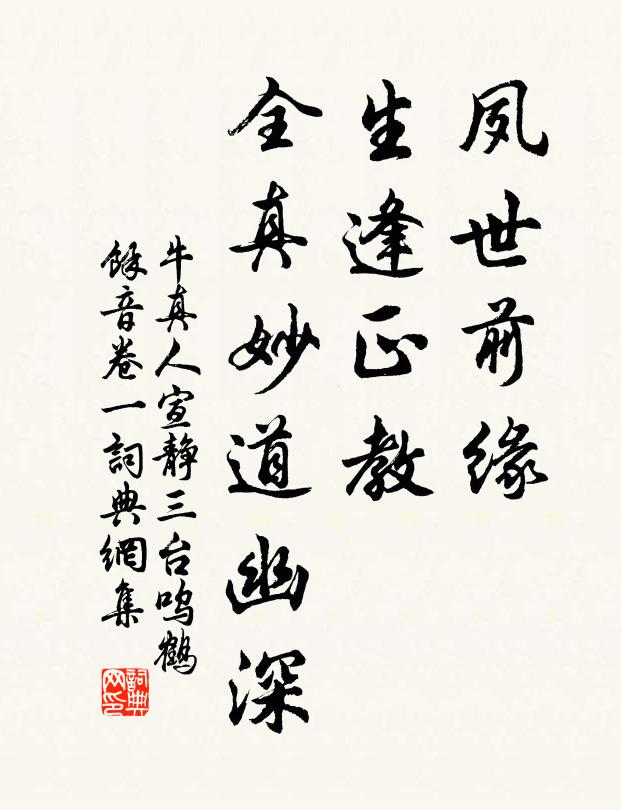 夙世前缘
生逢正教
全真妙道幽深
牛真人宣静三台鸣鹤
餘音卷一詞典網集
詞典网印